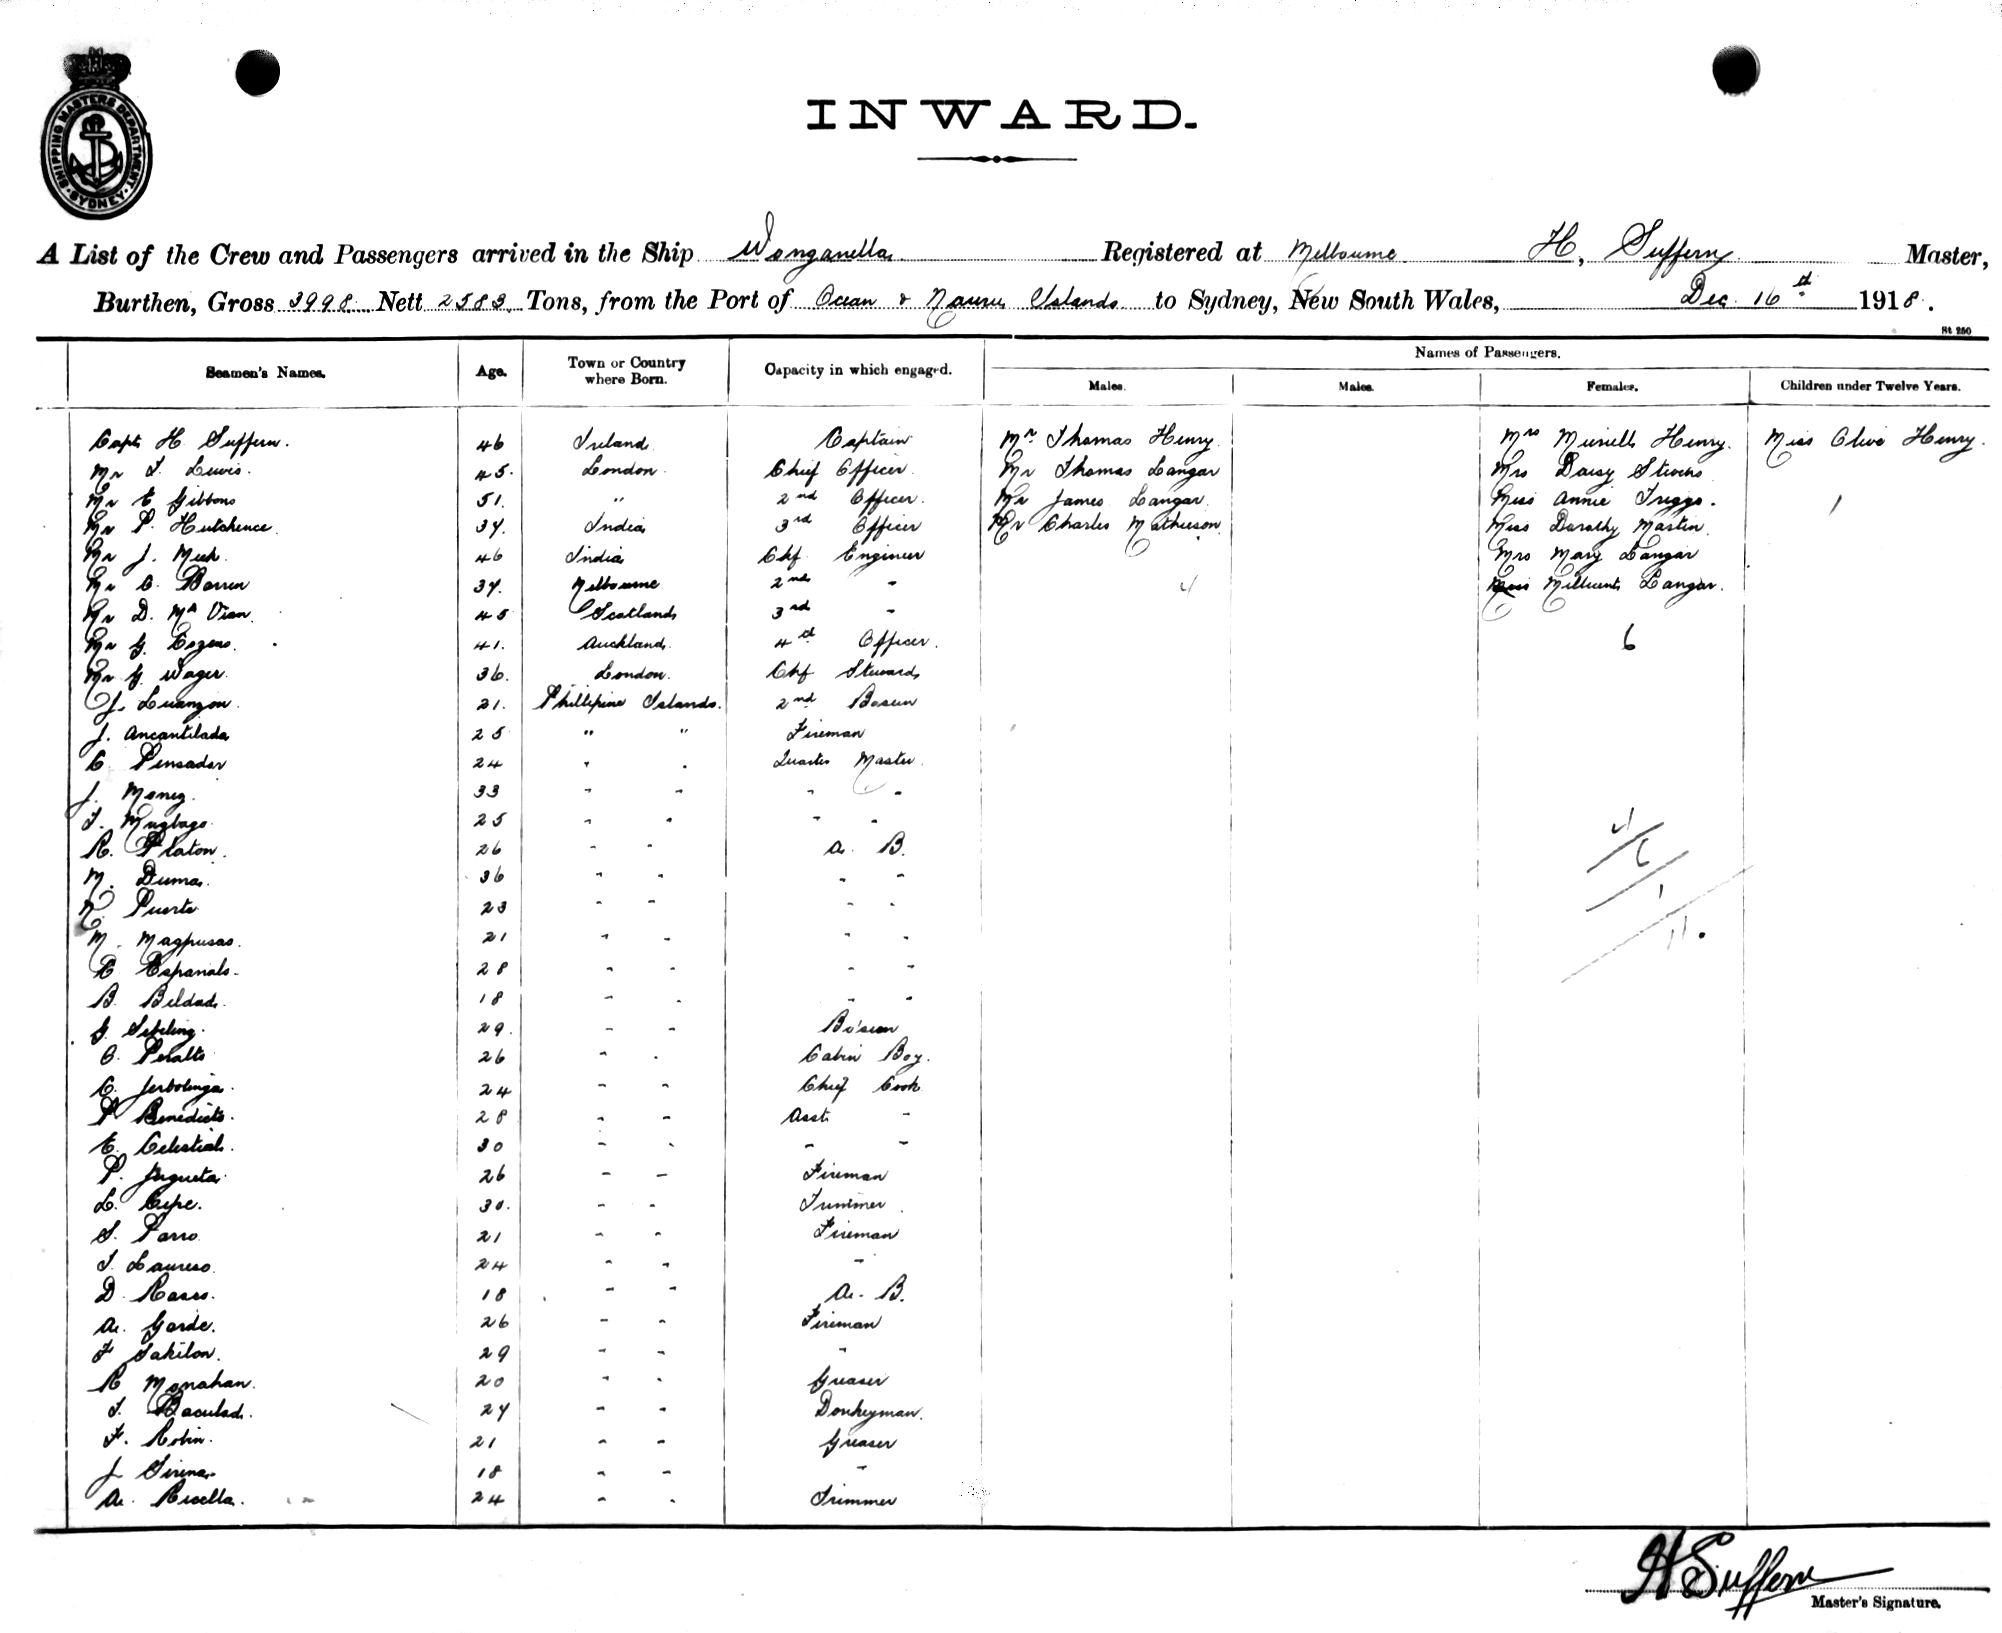 SHIPPING MASTERS DEPARTMENT SYDNEY
INWARD.
A List of the Crew and Passengers arrived in the Ship Wonganella Registered at Melbourne H, Suffern Master,
Burthen, Gross 3998 Nett 2583 Tons, from the Port of Ocean & Nauru Islands to Sydney, New South Wales, Dec 16th 1918.
St 250
Seamen's Names. Age. Town or Country where Born. Capacity in which engaged. Names of Passengers.
Males. Males. Females. Children under Twelve Years.
Capt H. Suffern. 46 Ireland Captain Mr Thomas Henry Mrs Muriell Henry. Miss Olive Henry.
Mr T. Lewis. 45. London Chief Officer Mr Thomas Langar Mrs Daisy Stevens
Mr E Gibbons 51. " 2nd Officer. Mr James Langar Miss Annie Triggs. 1
Mr P. Hutchence 37. India 3rd Officer Mr Charles Matheson Miss Dorothy Martin
Mr J. Meek 46 India Chf Engineer Mrs Mary Langar
Mr C. Barren 37. Melbourne 2nd " 4 Miss Millicent Langar.
Mr D. Mc Vian 45 Scotland 3rd "
Mr G. Cozens. 41. Auckland 4th Officer. 6
Mr G. Wager. 36. London. Chf Steward
J. Luanzon. 21. Phillipine Islands. 2nd Bosun
J. Ancantilada 25 " " Fireman
C. Pensador 24 " " Quarter Master
J. Moneg. 33 " " " "
T. Magbago. 25 " " " "
R. Platon. 26 " " A. B. 4
M. Duma. 36 " " " " 6
N. Puerte 23 " " " " 1
M. Magpusao. 21 " " " " 11.
E. Espanals. 28 " " " "
B. Beldad. 18 " " " "
G. Sebeling. 29. " " Bo'sun
C. Peralta 26 " " Cabin Boy.
C. Jerbolinga. 24 " " Chief Cook
P Benedicto. 28 " " Asst. "
E. Celestial. 30 " " " "
P. Jugueta. 26 " " Fireman
L. Cupe. 30. " " Trimmer
S. Parro. 21 " " Fireman
T. Laureso. 24 " " "
D. Rasos. 18 " " A. B.
A. Garde. 26 " " Fireman
F Sakilon. 29 " " "
R Monahan. 20 " " Greaser
T. Baculad. 27 " " Donkeyman.
F. Robin. 21 " " Greaser
J Sirena. 18 " " "
A. Ricella. 24 " " Trimmer
H Suffern
Master's Signature.